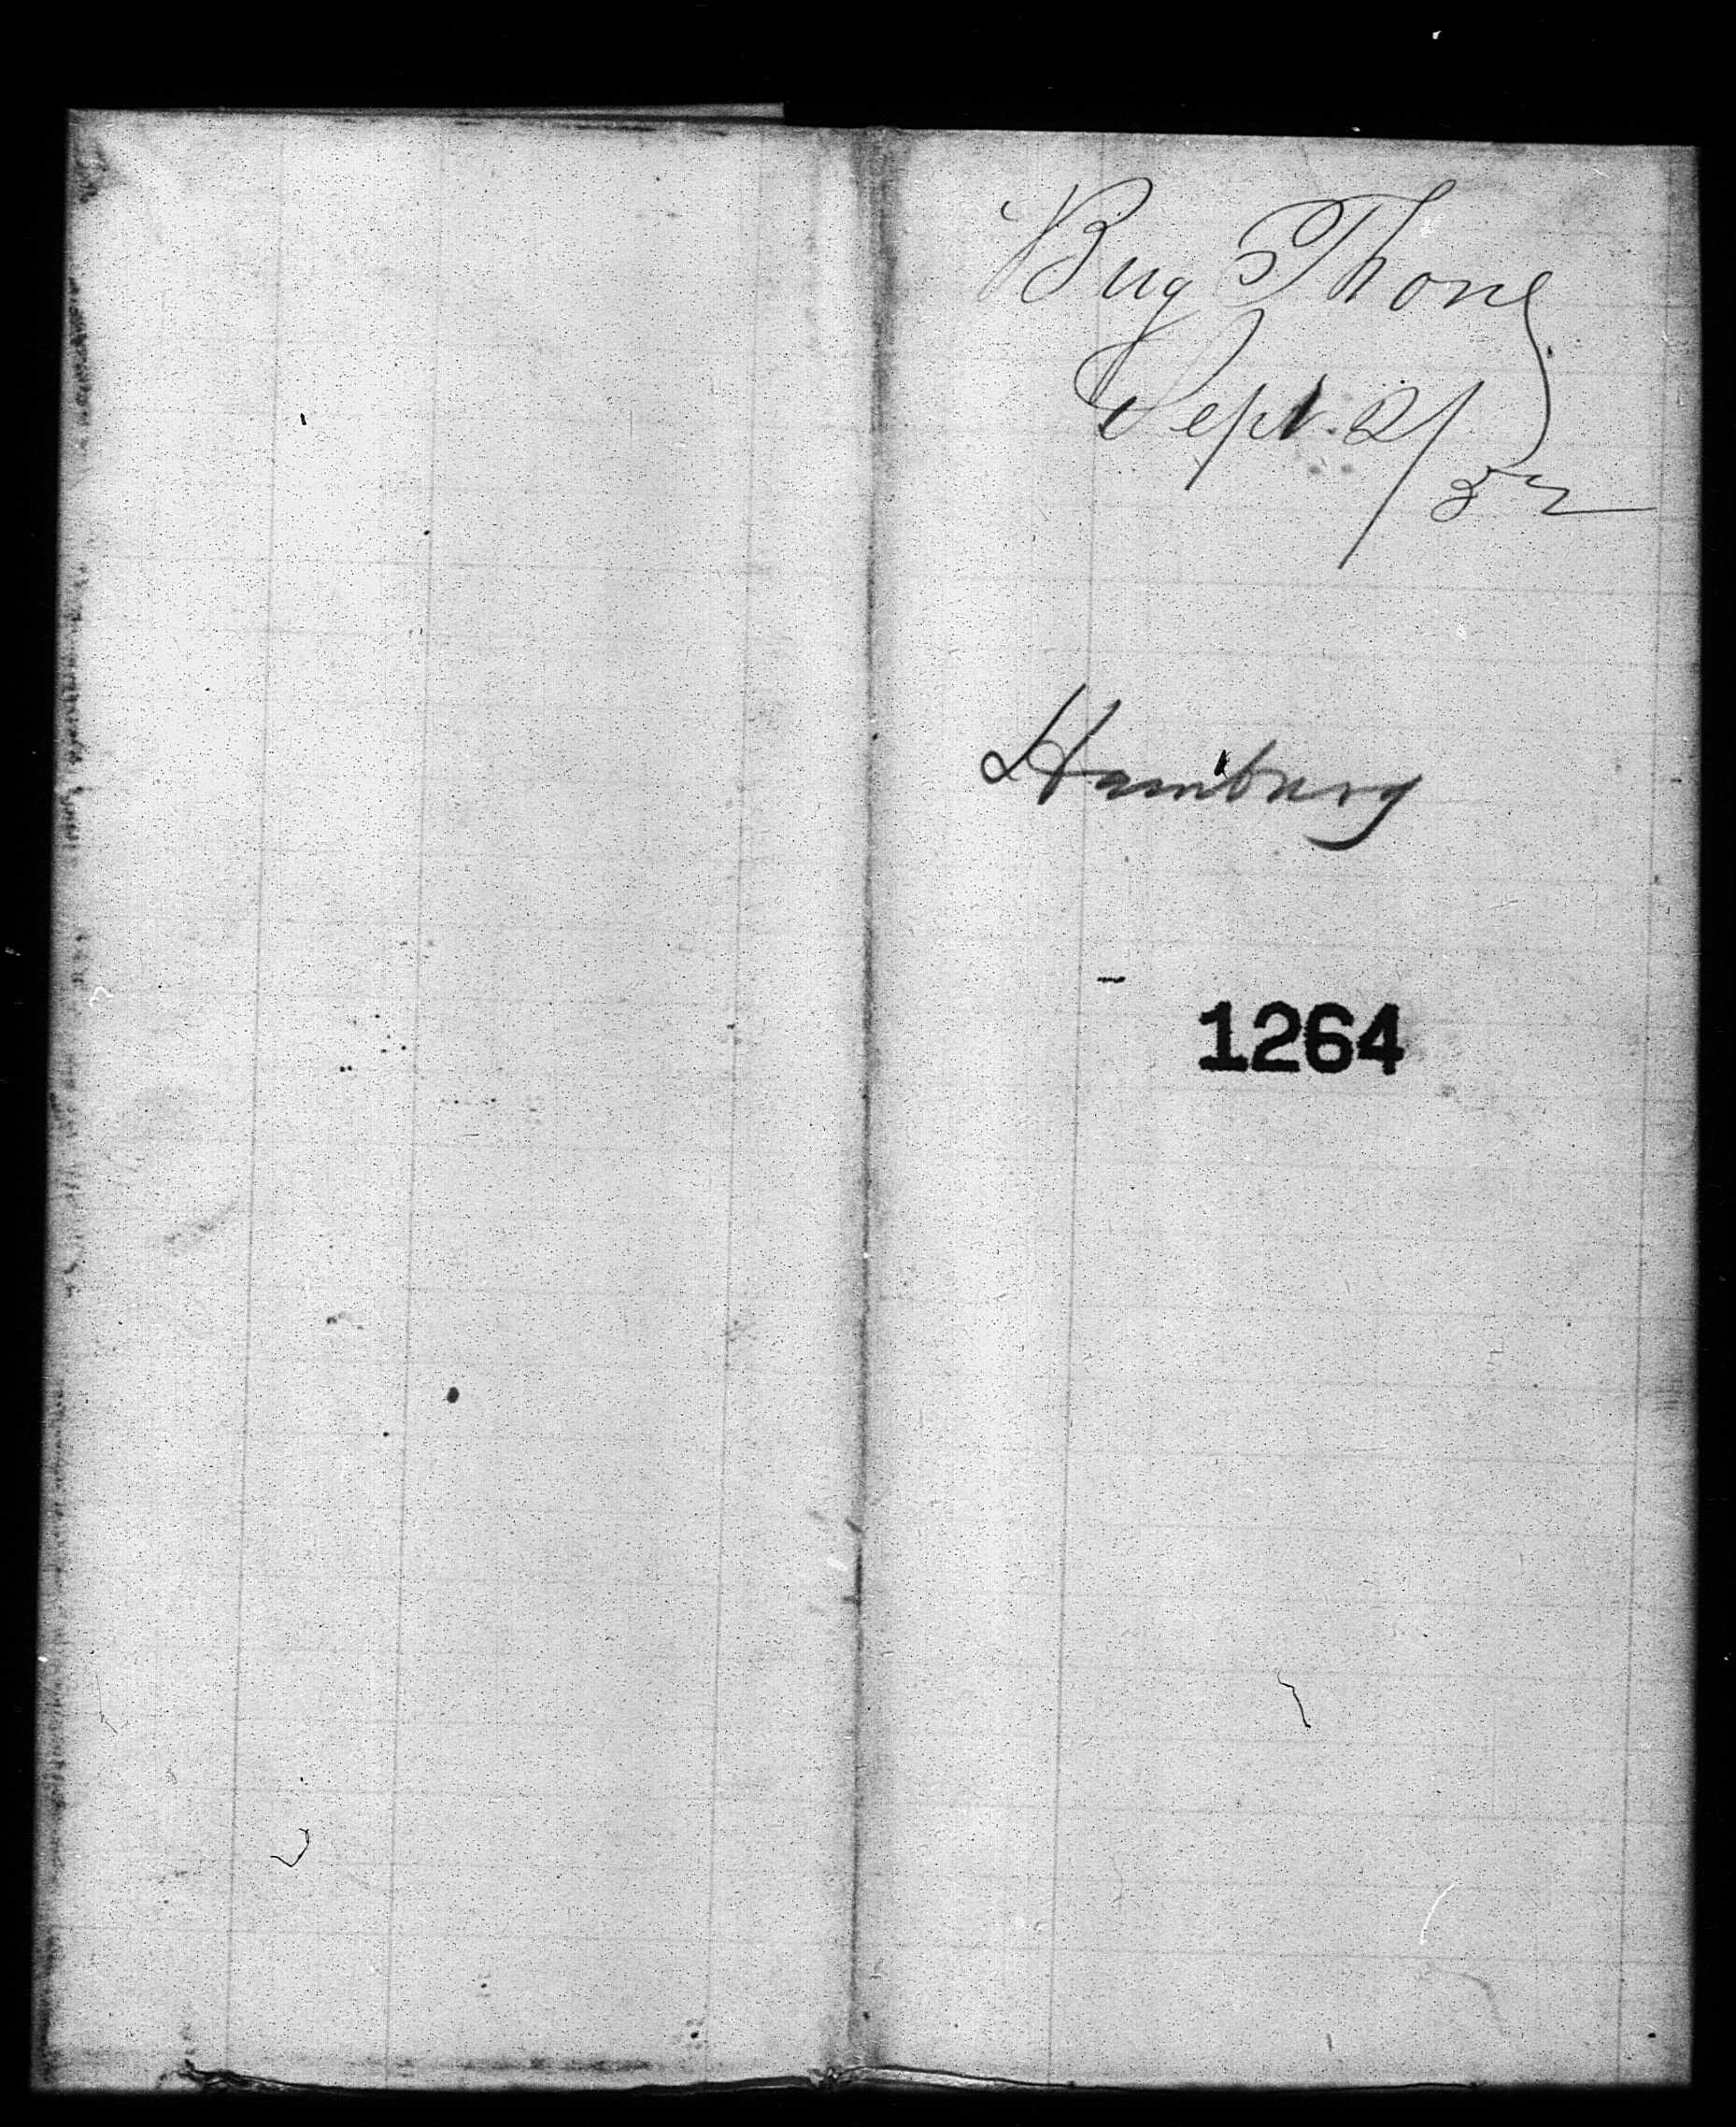 Brig Thone
Sept. 2/52
Hamburg
1264